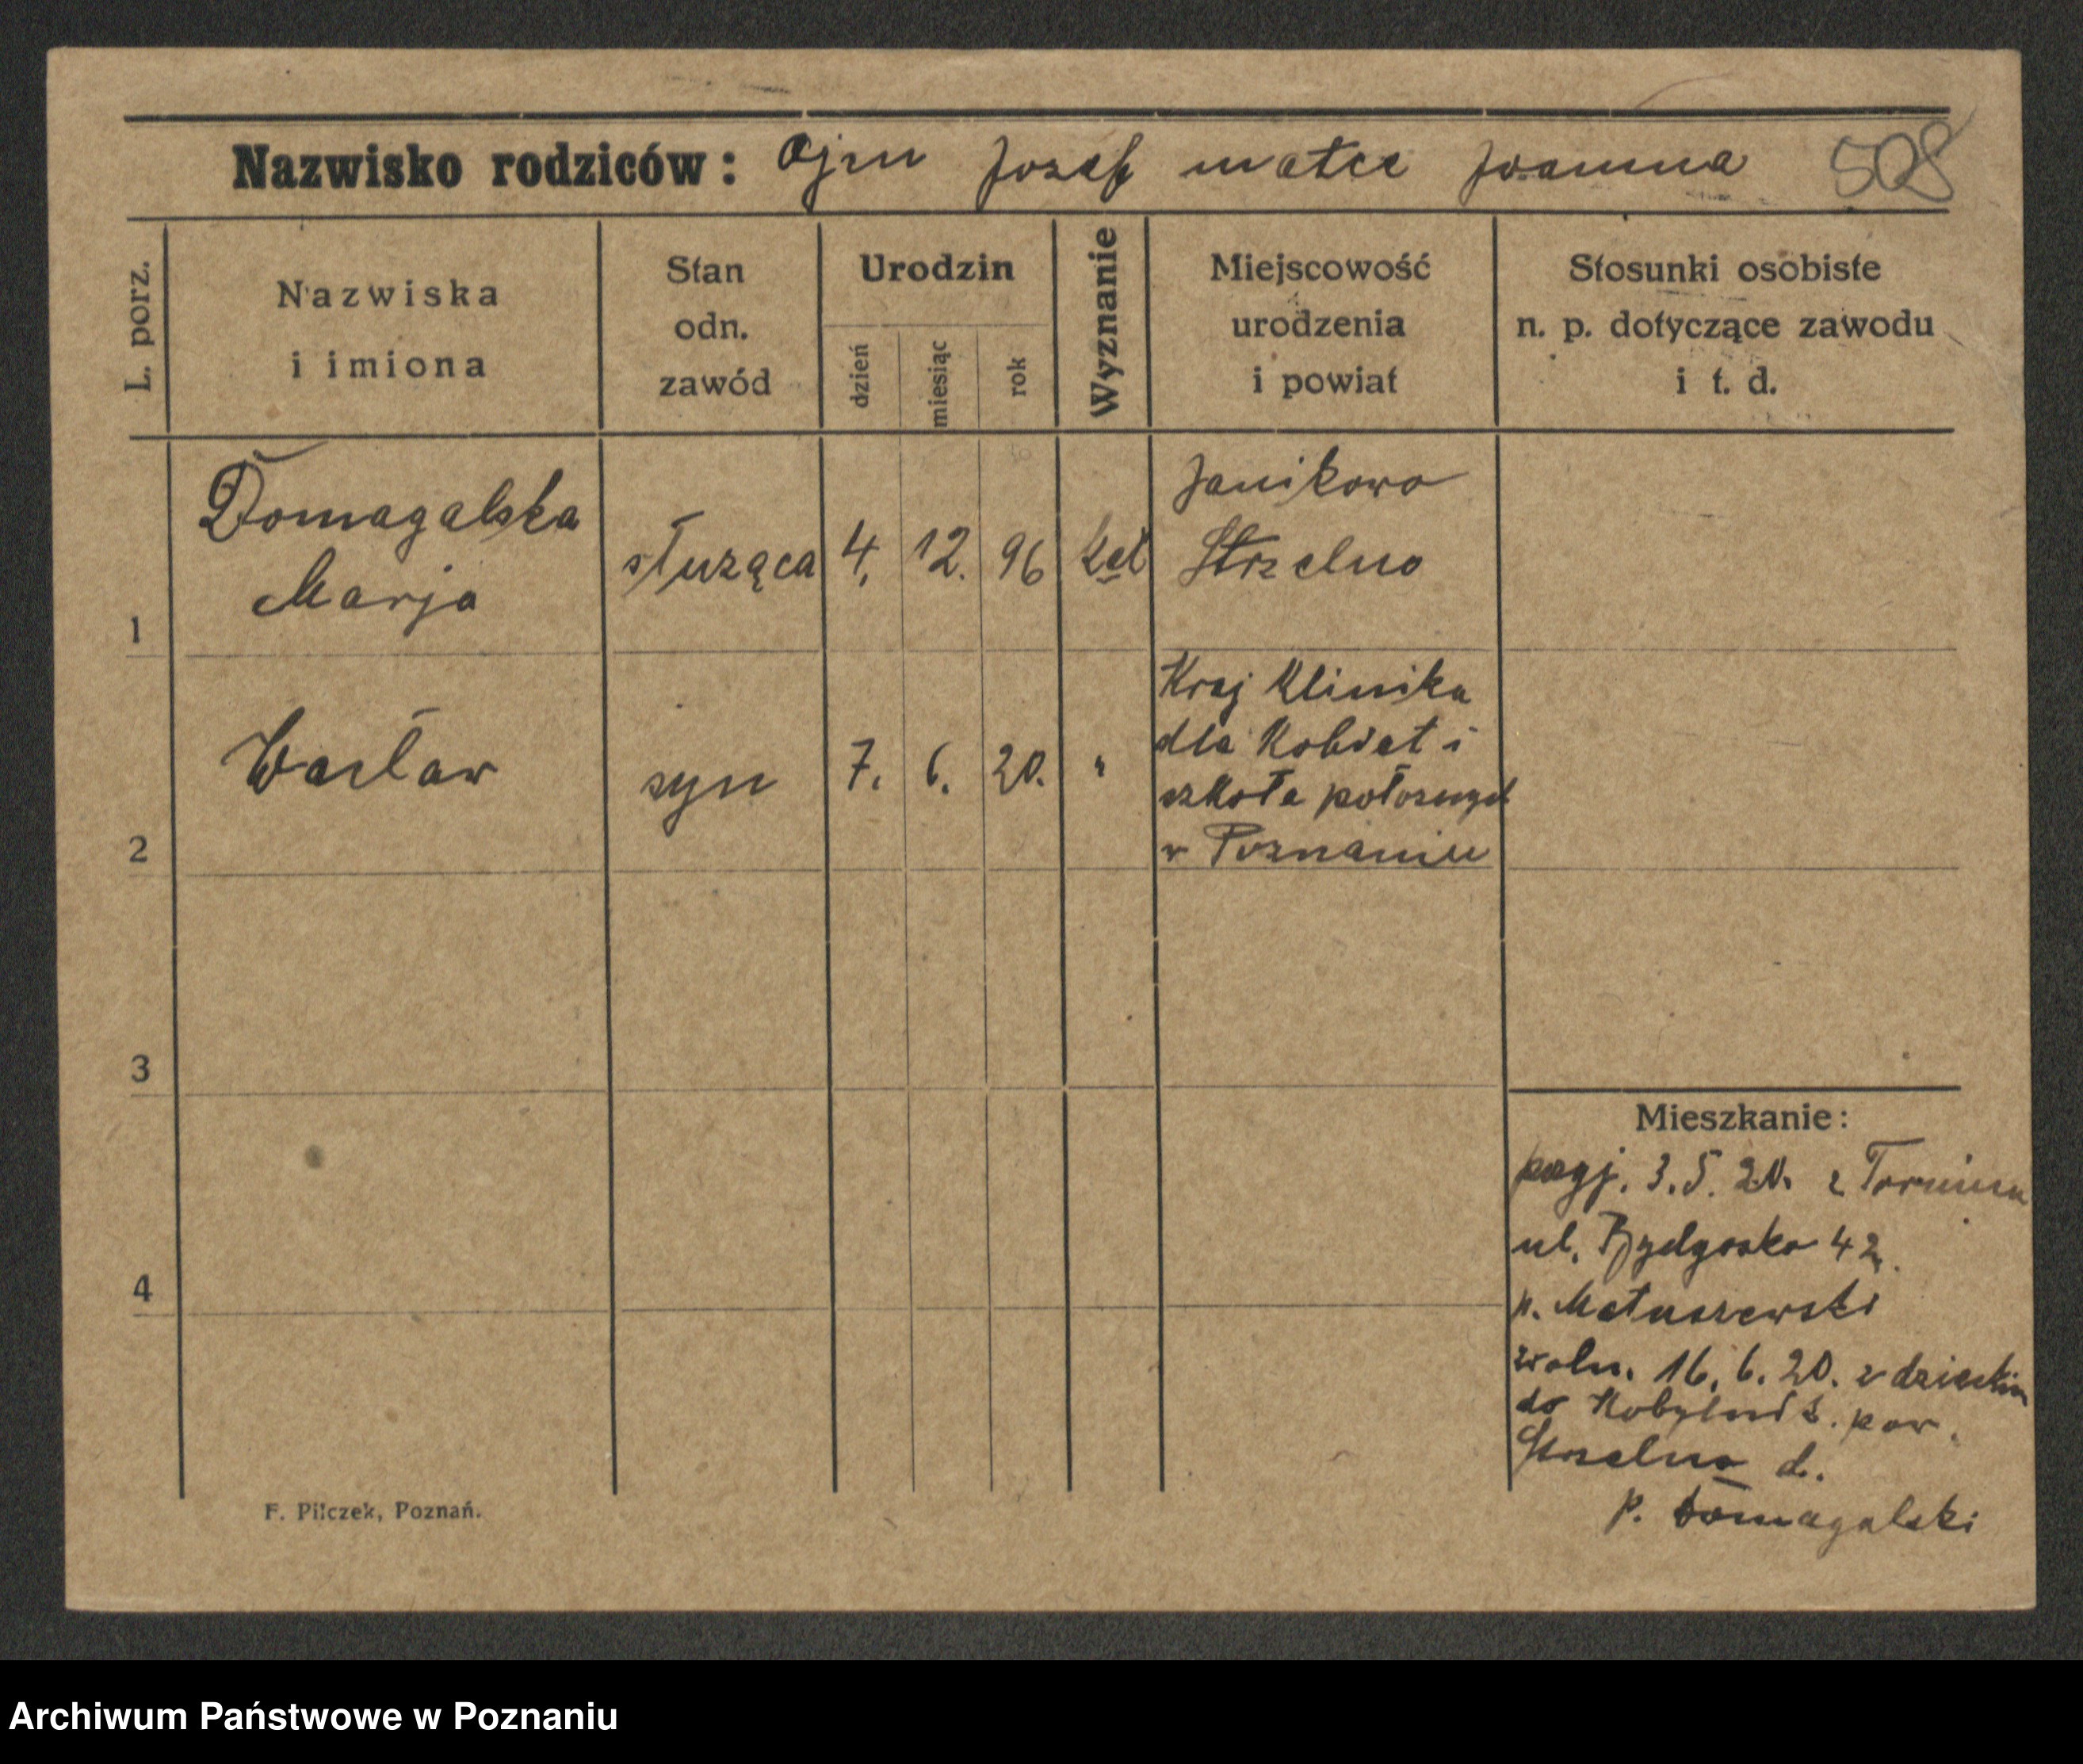 Nazwisko rodziców: Ojcu Jozef matce Joanna 508
L. porz.
Nazwiska
i imiona
Stan
odn.
zawód
Urodzin
dzień
miesiąc
rok
Wyznanie
Miejscowość
urodzenia
i powiat
Stosunki osobiste
n. p. dotyczące zawodu
i t. d.
1
Domagalska
Marja
służąca
4.
12.
96
kat
Janikowo
Strzelno
2
Wacław
syn
7.
6.
20.
"
Kraj Klinika
dla Kobiet i
szkoła położnych
w Poznaniu
3
4
Mieszkanie:
przyj. 3.5.20. z Torunia
ul. Bydgoska 42
p. Matuszewski
woln. 16.6.20. z dzieckiem
do pow.
Strzelno d.
p. Domagalski
F. Pilczek, Poznań.
Archiwum Państwowe w Poznaniu